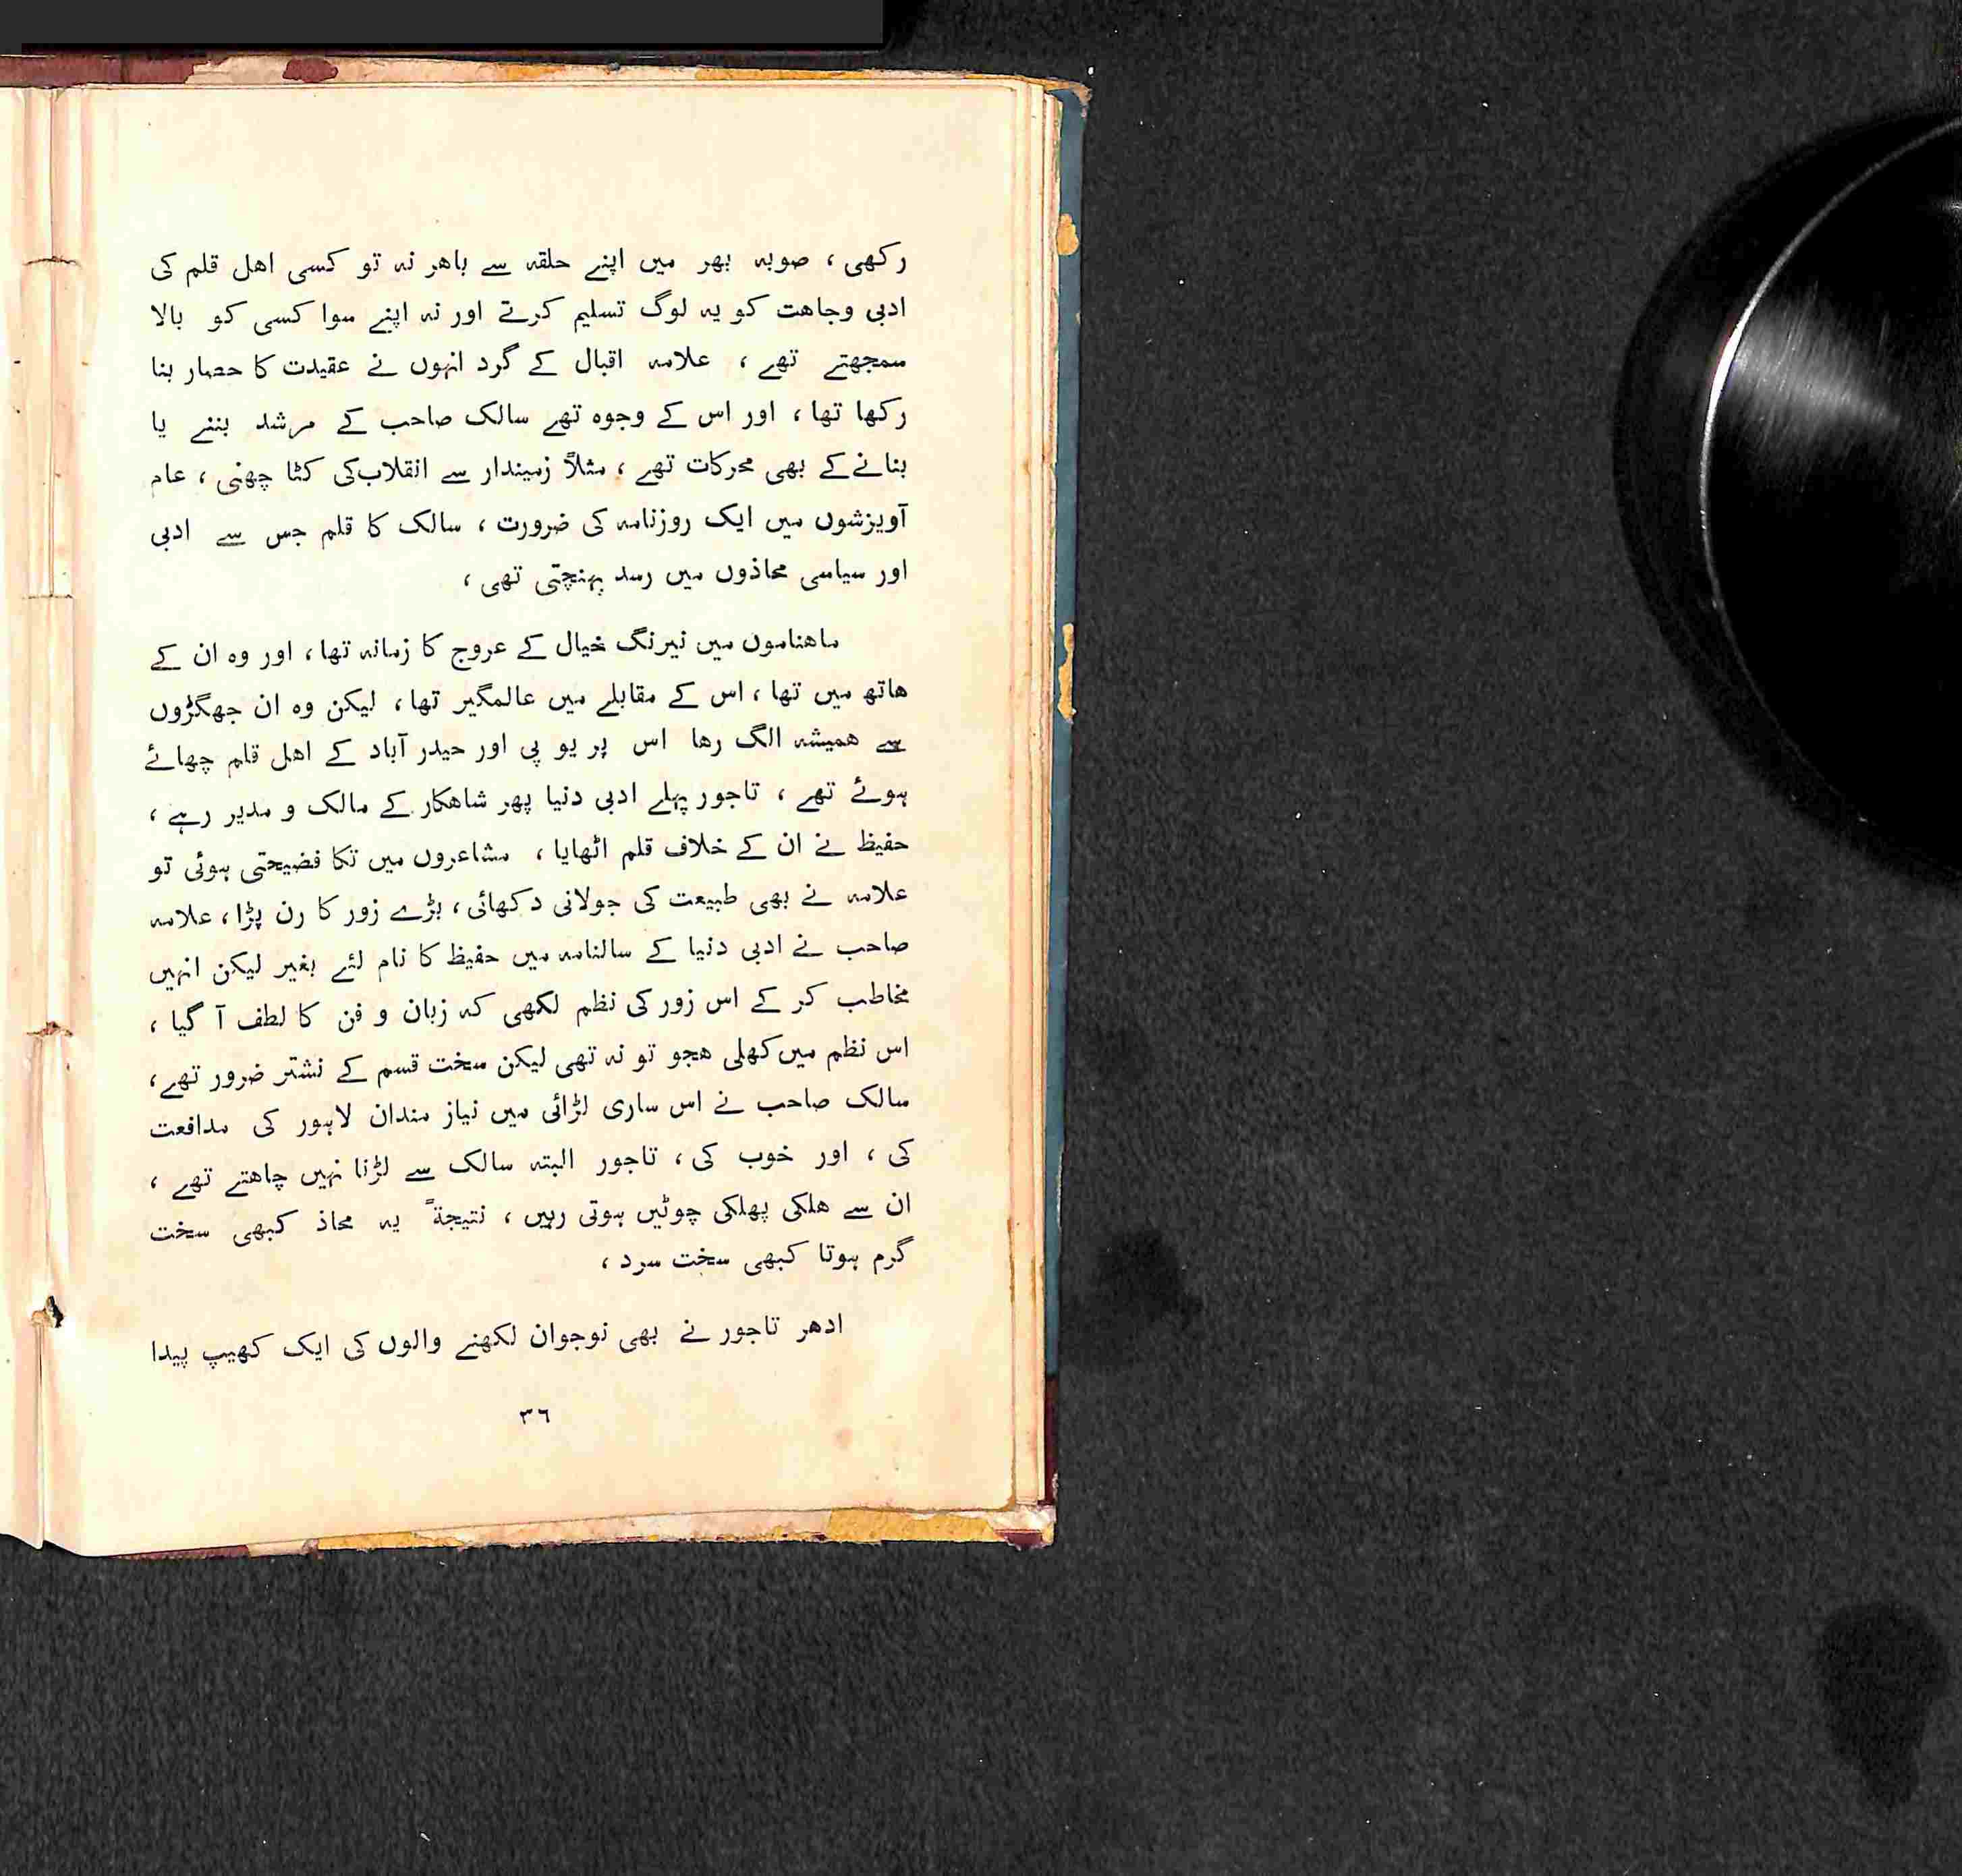 رکھی ، صوبہ بھر میں اپنے حلقہ سے باھر نہ تو کسی اھل قلم کی
ادبی وجاھت کو یہ لوگ تسلیم کرتے اور نہ اپنے سوا کسی کو بالا
سمجھتے تھے ، علامہ اقبال کے گرد انہوں نے عقیدت کا حصار بنا
رکھا تھا ، اور اس کے وجوہ تھے سالک صاحب کے مرشد بننے یا
بنانے کے بھی محرکات تھے ، مثلاً زمیندار سے انقلاب کی کٹا چھنی ، عام
آویزشوں میں ایک روزنامہ کی ضرورت ، سالک کا قلم جس سے ادبی
اور سیاسی محاذوں میں رسد پہنچتی تھی ،
ماھناموں میں نیرنگ خیال کے عروج کا زمانہ تھا ، اور وہ ان کے
ھاتھ میں تھا ، اس کے مقابلے میں عالمگیر تھا ، لیکن وہ ان جھگڑوں
سے ھمیشہ الگ رھا اس پر یو پی اور حیدر آباد کے اھل قلم چھائے
ہوئے تھے ، تاجور پہلے ادبی دنیا پھر شاھکار کے مالک و مدیر رہے ،
حفیظ نے ان کے خلاف قلم اٹھایا ، مشاعروں میں تکا فضیحتی ہوئی تو
علامہ نے بھی طبیعت کی جولانی دکھائی ، بڑے زور کا رن پڑا ، علامہ
صاحب نے ادبی دنیا کے سالنامہ میں حفیظ کا نام لئے بغیر لیکن انہیں
مخاطب کر کے اس زور کی نظم لکھی کہ زبان و فن کا لطف آ گیا ،
اس نظم میں کھلی ھجو تو نہ تھی لیکن سخت قسم کے نشتر ضرور تھے ،
سالک صاحب نے اس ساری لڑائی میں نیاز مندان لاہور کی مدافعت
کی ، اور خوب کی ، تاجور البتہ سالک سے لڑنا نہیں چاھتے تھے ،
ان سے ھلکی پھلکی چوٹیں ہوتی رہیں ، نتیجۃً یہ محاذ کبھی سخت
گرم ہوتا کبھی سخت سرد ،
ادھر تاجور نے بھی نوجوان لکھنے والوں کی ایک کھیپ پیدا
۳٦